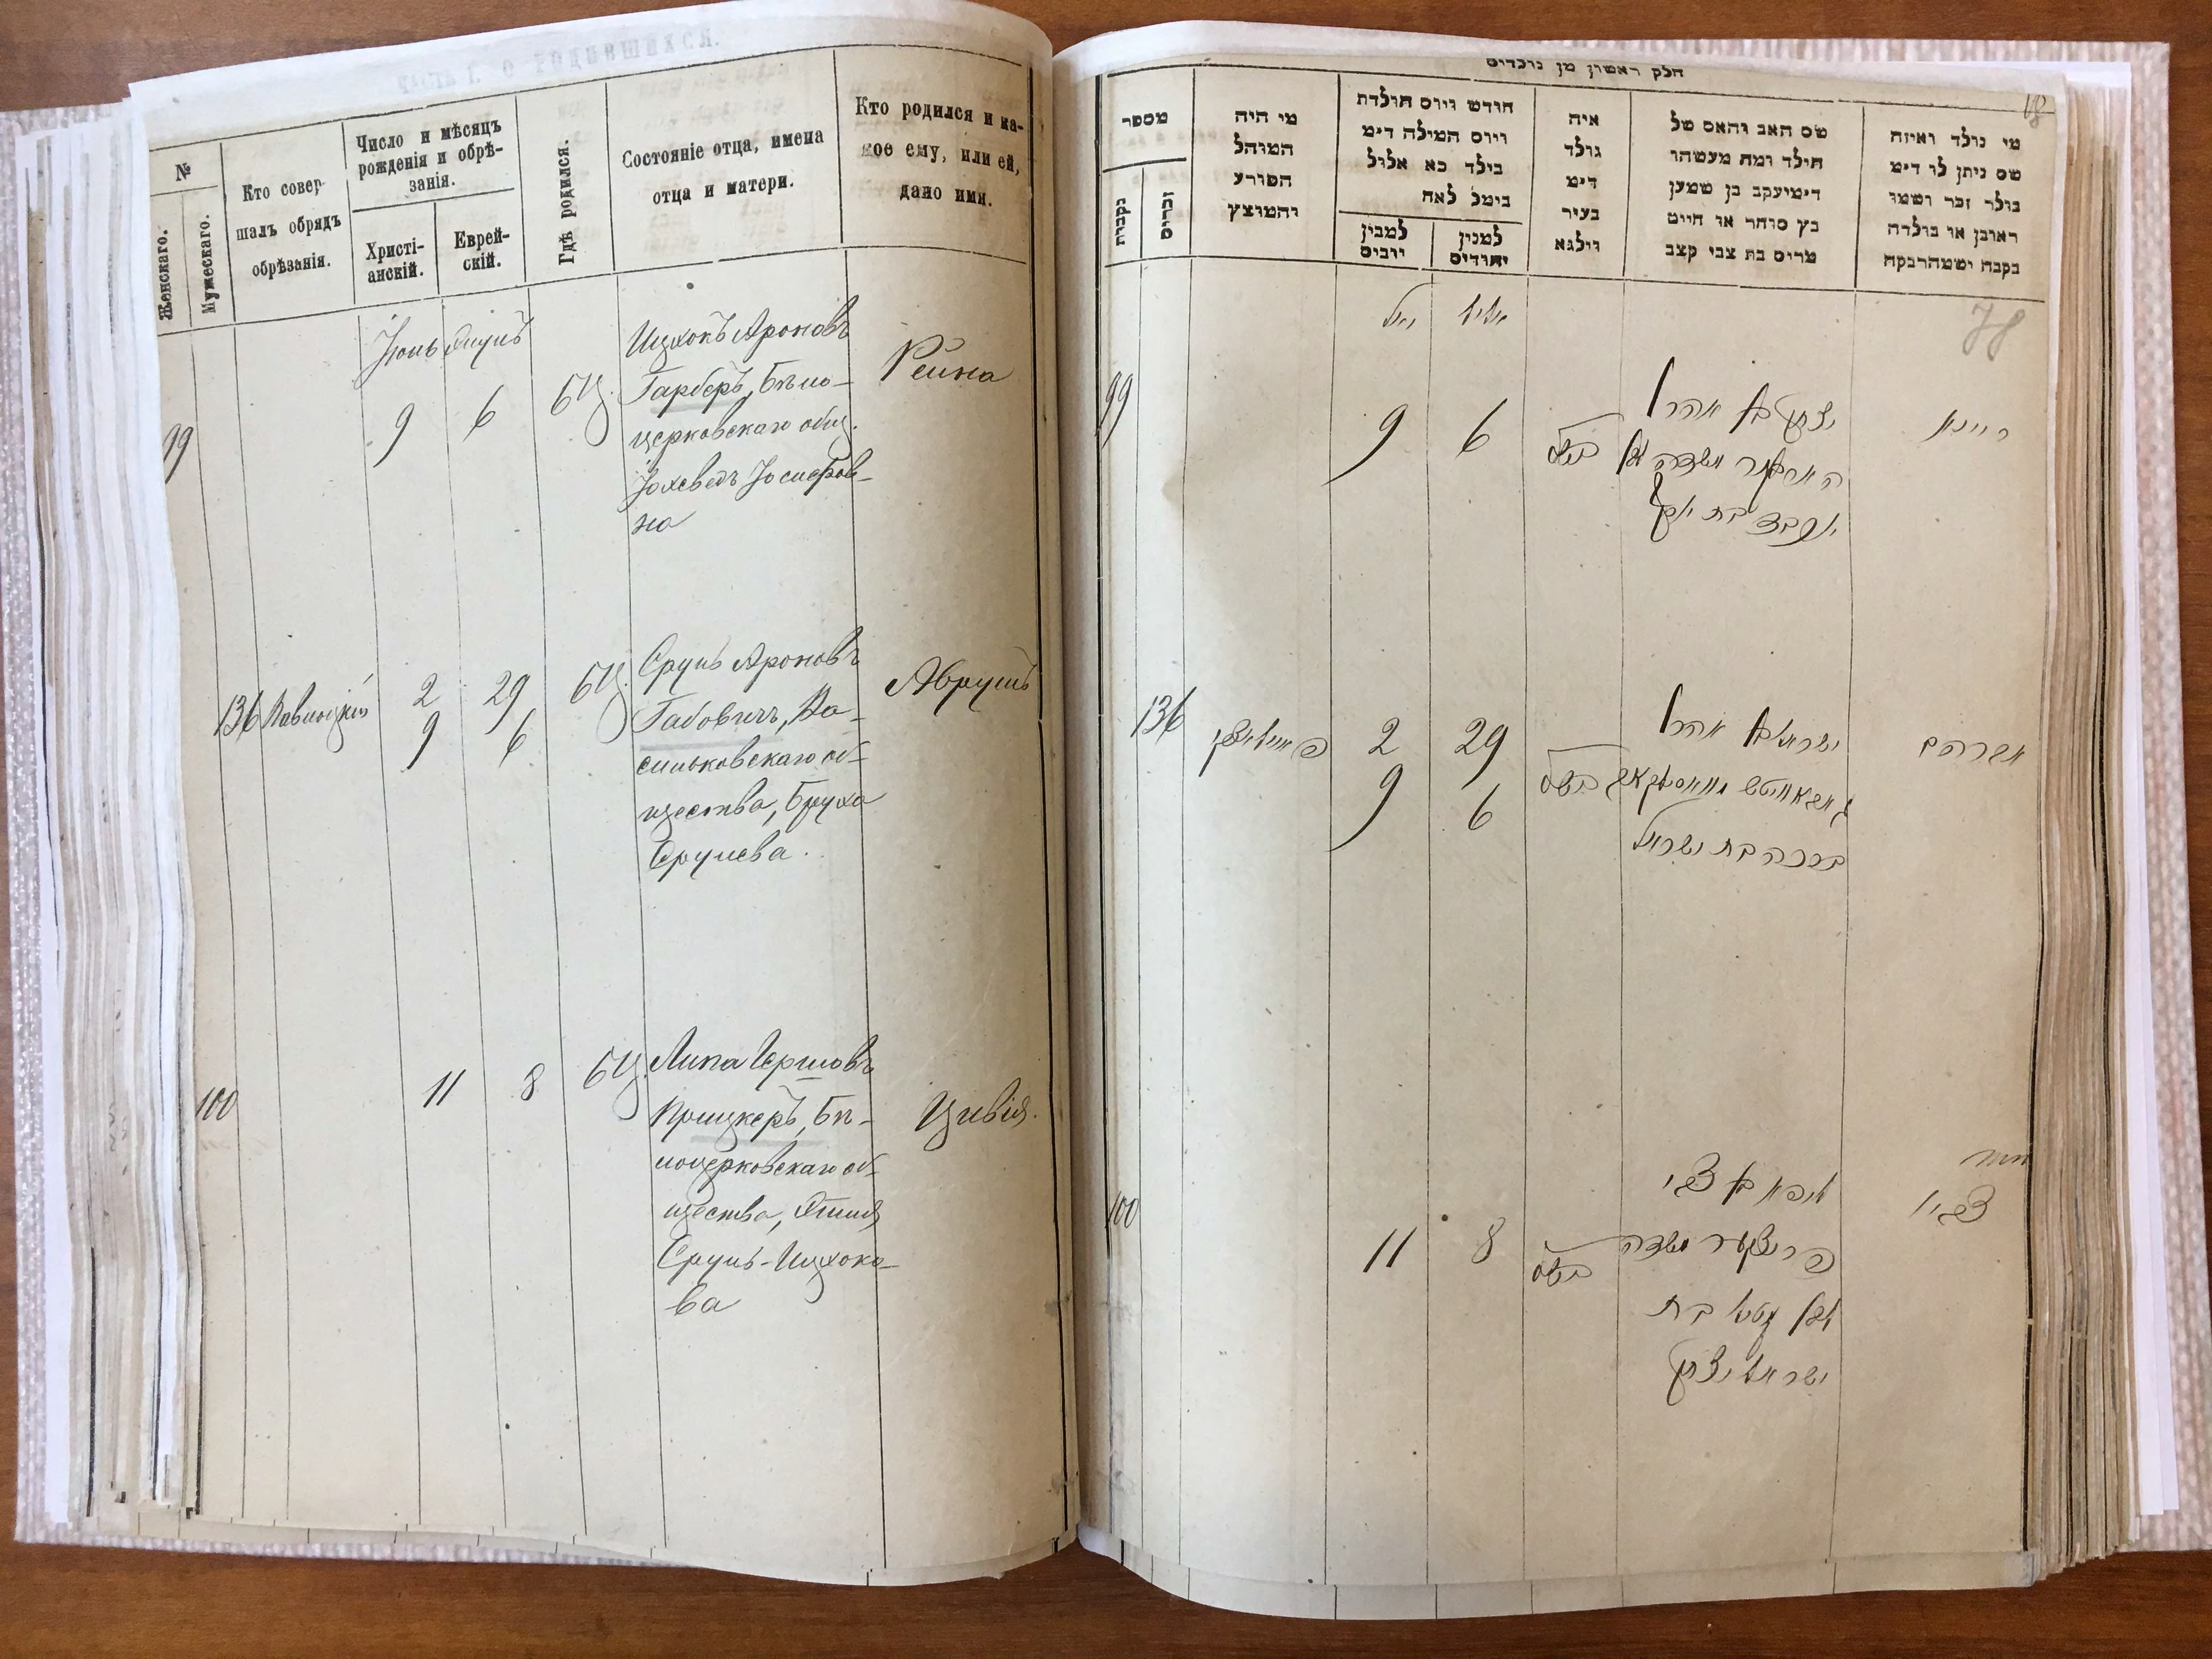 ЧАСТЬ I. О РОДИВШИХСЯ.
№
Женскаго.
Мужескаго.
Кто совер-
шалъ обрядъ
обрѣзанія.
Число и мѣсяцъ
рожденія и обрѣ-
занія.
Христі-
анскій.
Еврей-
скій.
Гдѣ родился.
Состояніе отца, имена
отца и матери.
Кто родился и ка-
кое ему, или ей,
дано имя.
Іюнь
99
9
6
БЦ.
Ицхокъ Ароновъ
Гарберъ, Бѣло-
церковскаго общ.
Іохеведъ Іосифов-
на
Рейна
136
2
29
9
6
БЦ.
Сруль Ароновъ
Габовичъ, Ва-
сильковскаго об-
щества, Бруха
Срулева.
Абрумъ
100
11
8
БЦ.
Липа Гершовъ
Прицкеръ, Бѣ-
лоцерковскаго об-
щества, Этля
Сруль-Ицхоко-
ва
Цивія.
חלק ראשון מן נולדים
18
מספר
נקבות
זכרים
מי היה
המוהל
הפורע
והמוצץ
חודש ויום הולדת
ויום המילה דימ
בילד כא אלול
בימל לאח
למנין
יוניס
למנין
יהודים
איה
נולד
דימ
בעיר
ווילנא
שם האב והאם של
הילד ומה מעשהו
דימיעקב בן שמעון
כץ סוחר או חייט
מרים בת צבי קצב
מי נולד ואיזה
שם ניתן לו דימ
נולד זכר ושמו
ראובן או נולדה
נקבה ושמה רבקה
78
99
9
6
יצחק בן אהרן
יוכבד בת יוסף
ריינא
136
2
29
9
6
ישראל בן אהרן
ברכה בת ישראל
אברהם
100
11
8
ליפא בן צבי
פריצקער משדה
לבן עטל בת
ישראל יצחק
צביו